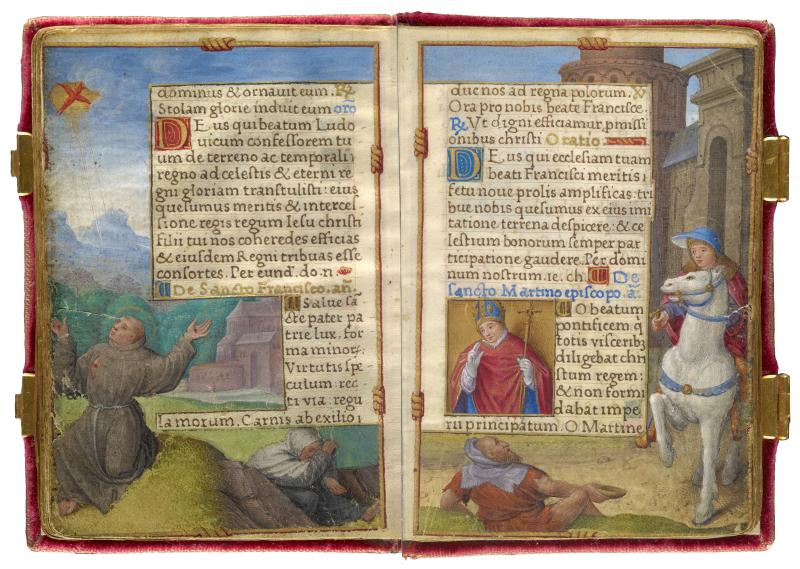 dominus & ornauit eum. ℟
Stolam glorie induit eum oro
DEus qui beatum Ludo
uicum confessorem tu
um de terreno ac temporali
regno ad celestis & eterni re
gni gloriam transtulisti: eius
quesumus meritis & interces
sione regis regum Iesu christi
filii tui nos coheredes efficias
& eiusdem Regni tribuas esse
consortes. Per eund. do. n
De Sancto Francisco. añ.
Salue sã
cte pater pa
trie lux. for
ma minor:
Virtutis spe
culum. rec
ti via: regu
la morum. Carnis ab exilio
duc nos ad regna polorum. ℣
Ora pro nobis beate Francisce.
℟ Vt digni efficiamur. pmissi
onibus christi Oratio
DEus qui ecclesiam tuam
beati Francisci meritis
fetu noue prolis amplificas: tri
bue nobis quesumus ex eius imi
tatione terrena despicere: & ce
lestium bonorum semper par
ticipatione gaudere. Per domi
num nostrum. ie. ch. De
sancto Martino episcopo. ã.
O beatum
pontificem q
totis viscerib
diligebat chri
stum regem:
& non formi
dabat impe
rii principatum. O Martine